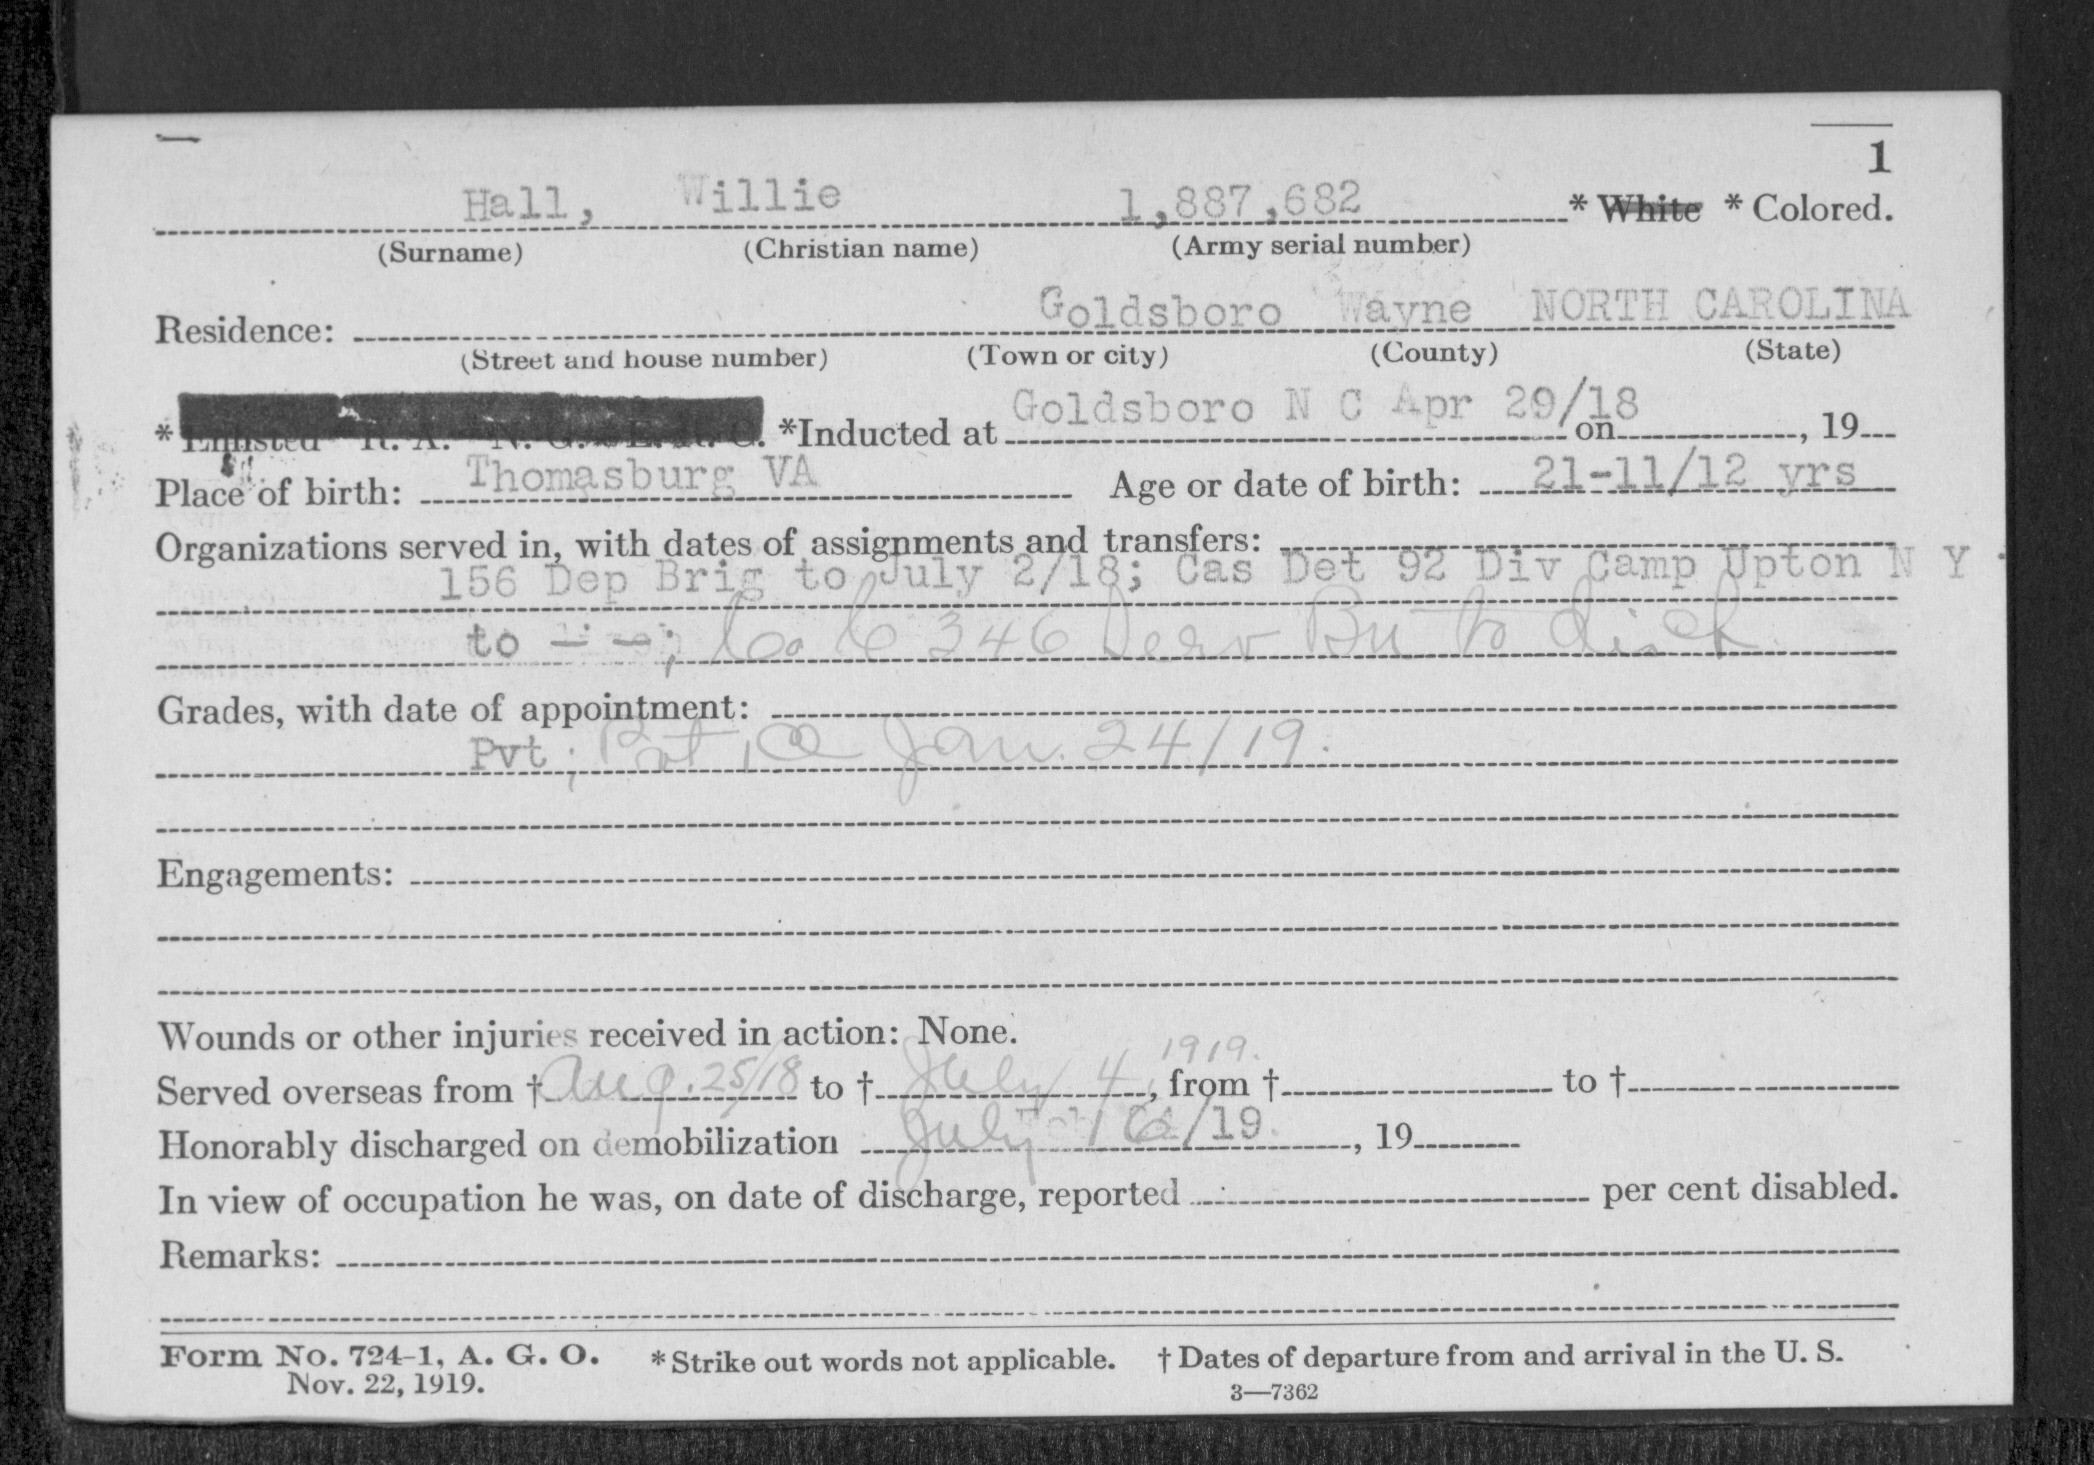 1
Hall, Willie 1,887,682 * White * Colored.
(Surname) (Christian name) (Army serial number)
Goldsboro Wayne NORTH CAROLINA
Residence:
(Street and house number) (Town or city) (County) (State)
Goldsboro N C Apr 29/18
* Enlisted R. A. N. G. E. R. C. *Inducted at on , 19
Place of birth: Thomasburg VA Age or date of birth: 21-11/12 yrs
Organizations served in, with dates of assignments and transfers:
156 Dep Brig to July 2/18; Cas Det 92 Div Camp Upton N Y
to — —; Co C 346 Serv Bn to disch
Grades, with date of appointment:
Pvt ; Pvt 1 Cl Jan. 24/19.
Engagements:
Wounds or other injuries received in action: None.
Served overseas from † Aug. 25/18 to † July 4, 1919. from † to †
Honorably discharged on demobilization July 16/19 , 19
In view of occupation he was, on date of discharge, reported per cent disabled.
Remarks:
Form No. 724-1, A. G. O. * Strike out words not applicable. † Dates of departure from and arrival in the U. S.
Nov. 22, 1919. 3—7362